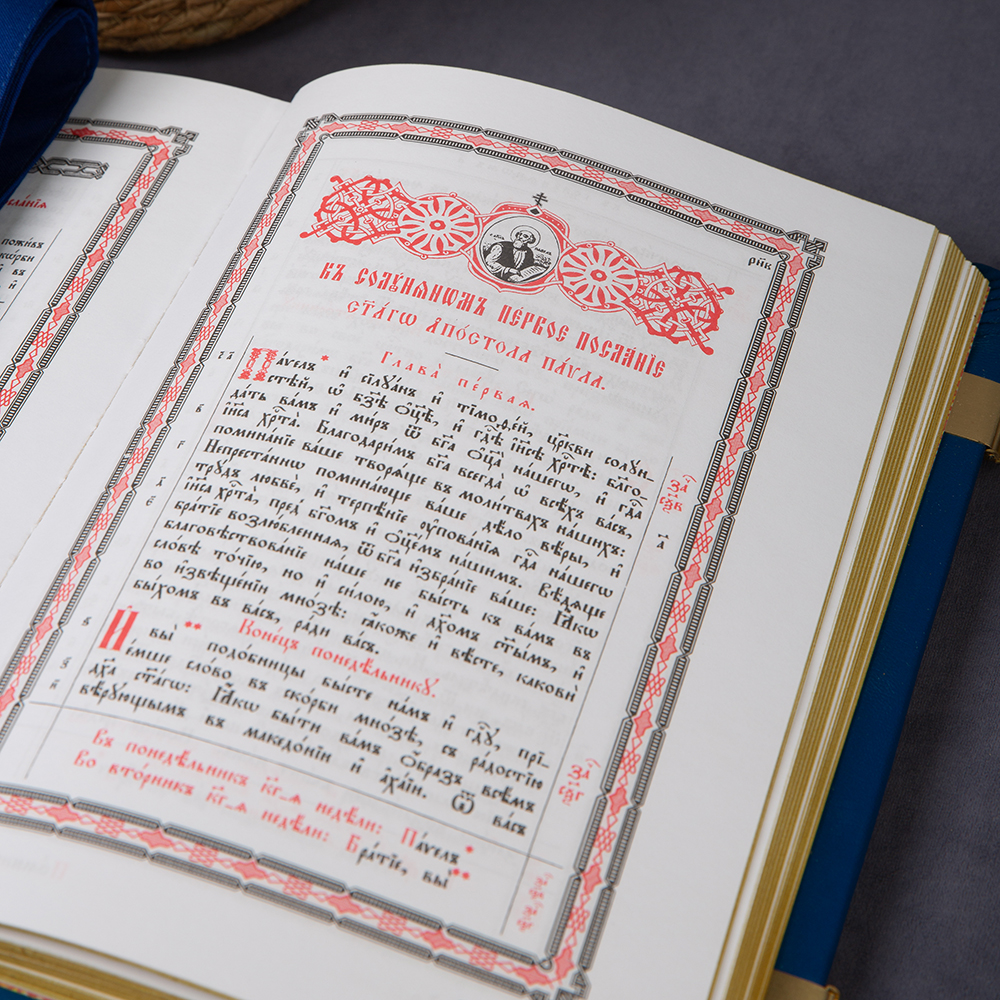 сла́нїѧ
пожи́въ
ско́рби
въ
и҆
рн҃в
къ солꙋ́нѧнѡмъ пе́рвое посла́нїе
ст҃а́гѡ а҆пⷭ҇тола па́ѵла.
Глава̀ пе́рваѧ.
За҃ а҃
Па́ѵелъ * и҆ сїлꙋа́нъ и҆ тїмоѳе́й, цр҃кви солꙋ́н-
стѣ́й, ѡ҆ бз҃ѣ ѻ҆ц҃ѣ̀, и҆ гдⷭ҇ѣ і҆и҃сѣ хрⷭ҇тѣ̀: бл҃го-
да́ть ва́мъ и҆ ми́ръ ѿ бг҃а ѻ҆ц҃а̀ на́шегѡ, и҆ гдⷭ҇а
в
і҆и҃са хрⷭ҇та̀. Благодари́мъ бг҃а всегда̀ ѡ҆ всѣ́хъ ва́съ,
поминáнїе ва́ше творѧ́ще въ моли́твахъ на́шихъ:
г
Непреста́ннѡ помина́юще ва́ше дѣ́ло вѣ́ры, и҆
трꙋ́дъ любвѐ, и҆ терпѣ́нїе ᲂу҆пова́нїѧ гдⷭ҇а на́шегѡ
д
і҆и҃са хрⷭ҇та̀, пред̾ бг҃омъ и҆ ѻ҆ц҃е́мъ на́шимъ. Вѣ́дѧще
є
бра́тїе возлю́бленнаѧ, ѿ бг҃а и҆збра́нїе ва́ше: Ꙗ҆́кѡ
благовѣствова́нїе на́ше не бы́сть къ ва́мъ въ
сло́вѣ то́чїю, но и҆ въ си́лѣ, и҆ въ дс҃ѣ ст҃ѣ, и҆
во и҆звѣще́нїи мно́зѣ: ꙗ҆́коже и҆ вѣ́сте, какови̑
бы́хомъ въ ва́съ, ра́ди ва́съ.
Коне́цъ понедѣ́льникꙋ.
ѕ
И҆ вы̀ ** подо́бницы бы́сте на́мъ и҆ гдⷭ҇ꙋ, прїе́мше
сло́во въ ско́рби мно́зѣ, съ ра́достїю
з
дх҃а ст҃а́гѡ: Ꙗ҆́кѡ бы́ти ва́мъ ѻ҆́бразъ всѣ̑мъ
и
вѣ́рꙋющымъ въ македо́нїи и҆ а҆ха́їи. Ѿ ва́съ
Въ понедѣ́льникъ к҃г-ѧ недѣ́ли: Па́ѵелъ *
Во вто́рникъ к҃г-ѧ недѣ́ли: Бра́тїе, вы̀ **